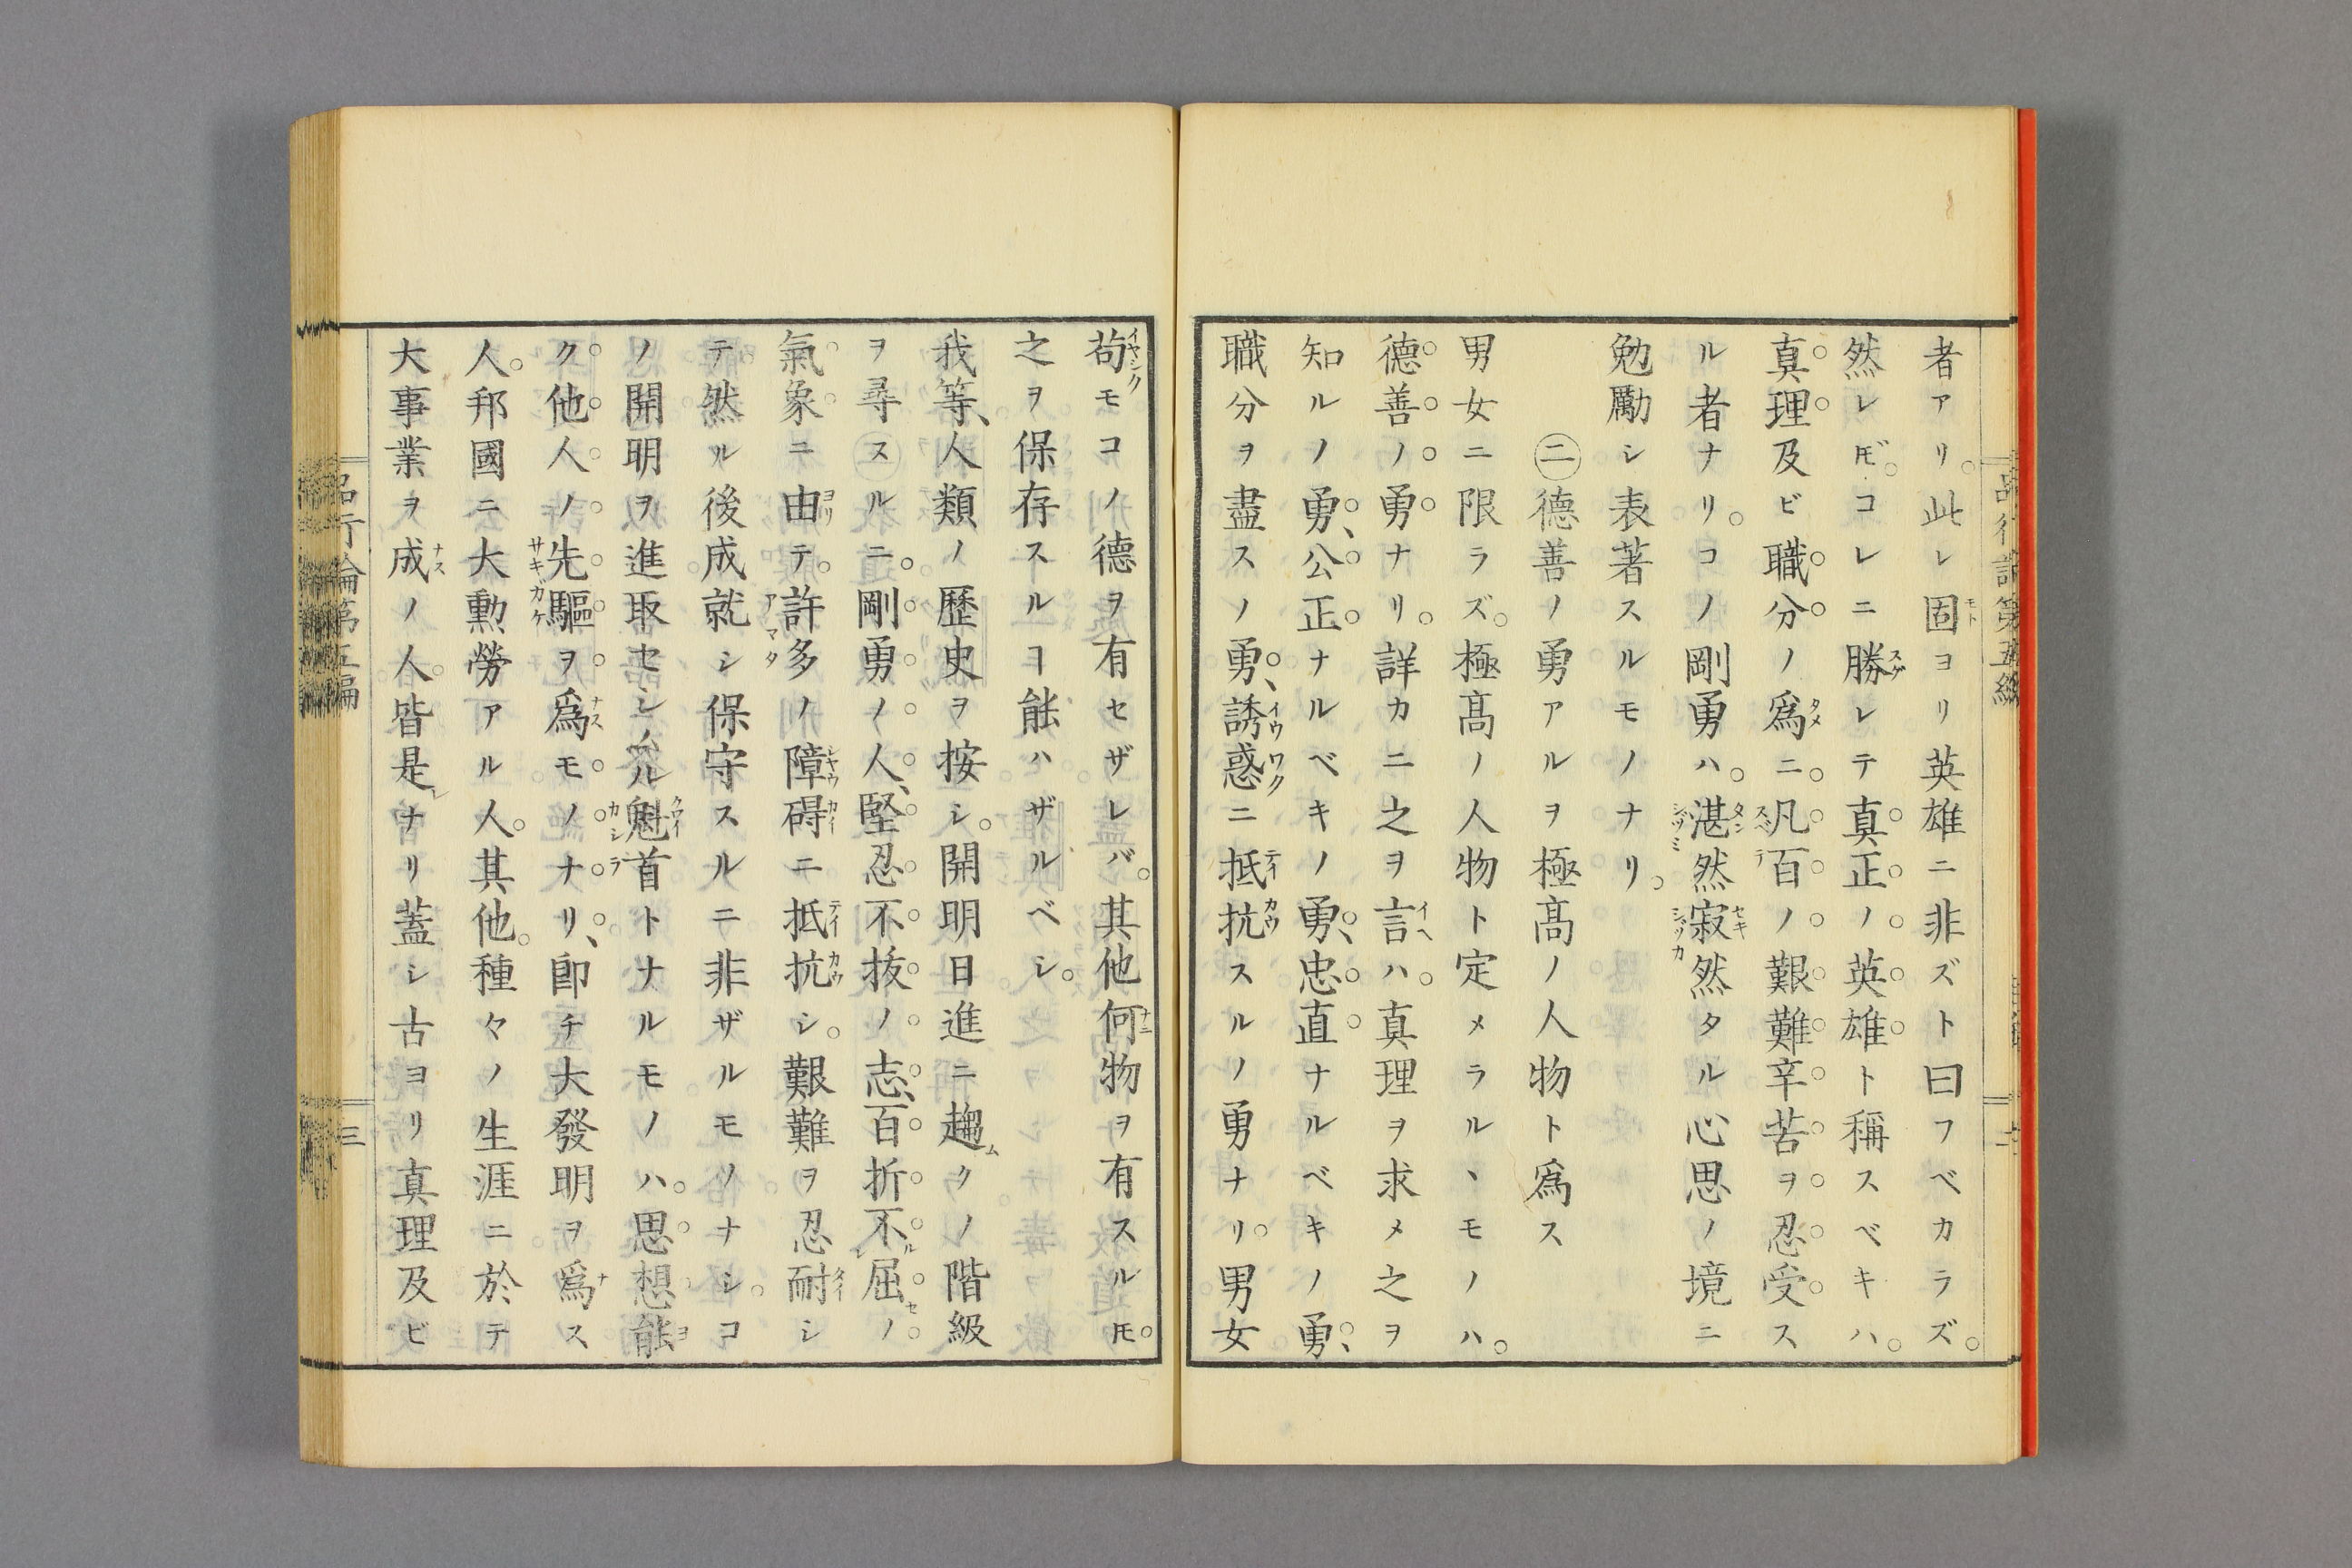 者アリ。此レ固ヨリ英雄ニ非ズト曰フベカラズ。
然レ𪜈。コレニ勝レテ真正ノ英雄ト稱スベキハ。
真理及ビ職分ノ爲ニ。凡百ノ艱難辛苦ヲ忍受ス
ル者ナリ。コノ剛勇ハ。湛然寂然タル心思ノ境ニ
勉勵シ表著スルモノナリ。
㊁德善ノ勇アルヲ極髙ノ人物ト爲ス
男女ニ限ラズ。極髙ノ人物ト定メラルヽモノハ。
德善ノ勇ナリ。詳カニ之ヲ言ハ。真理ヲ求メ之ヲ
知ルノ勇、公正ナルベキノ勇、忠直ナルベキノ勇、
職分ヲ盡スノ勇、誘惑ニ抵抗スルノ勇ナリ。男女
苟モコノ德ヲ有セザレバ。其他何物ヲ有スル𪜈。
之ヲ保存スルヿ能ハザルベシ。
我等、人類ノ歷史ヲ按シ。開明日進ニ趨クノ階級
ヲ尋スルニ。剛勇ノ人、堅忍不拔ノ志、百折不屈ノ
氣象ニ由テ。許多ノ障碍ニ抵抗シ。艱難ヲ忍耐シ
テ然ル後成就シ保守スルニ非ザルモノナシ。コ
ノ開明ヲ進取セシメル魁首トナルモノハ。思想能
ク他人ノ先驅ヲ爲モノナリ、卽チ大發明ヲ爲ス
人。邦國ニ大勳勞アル人。其他。種々ノ生涯ニ於テ
大事業ヲ成ノ人。皆是ナリ蓋シ古ヨリ真理及ビ
品行論第五編
三